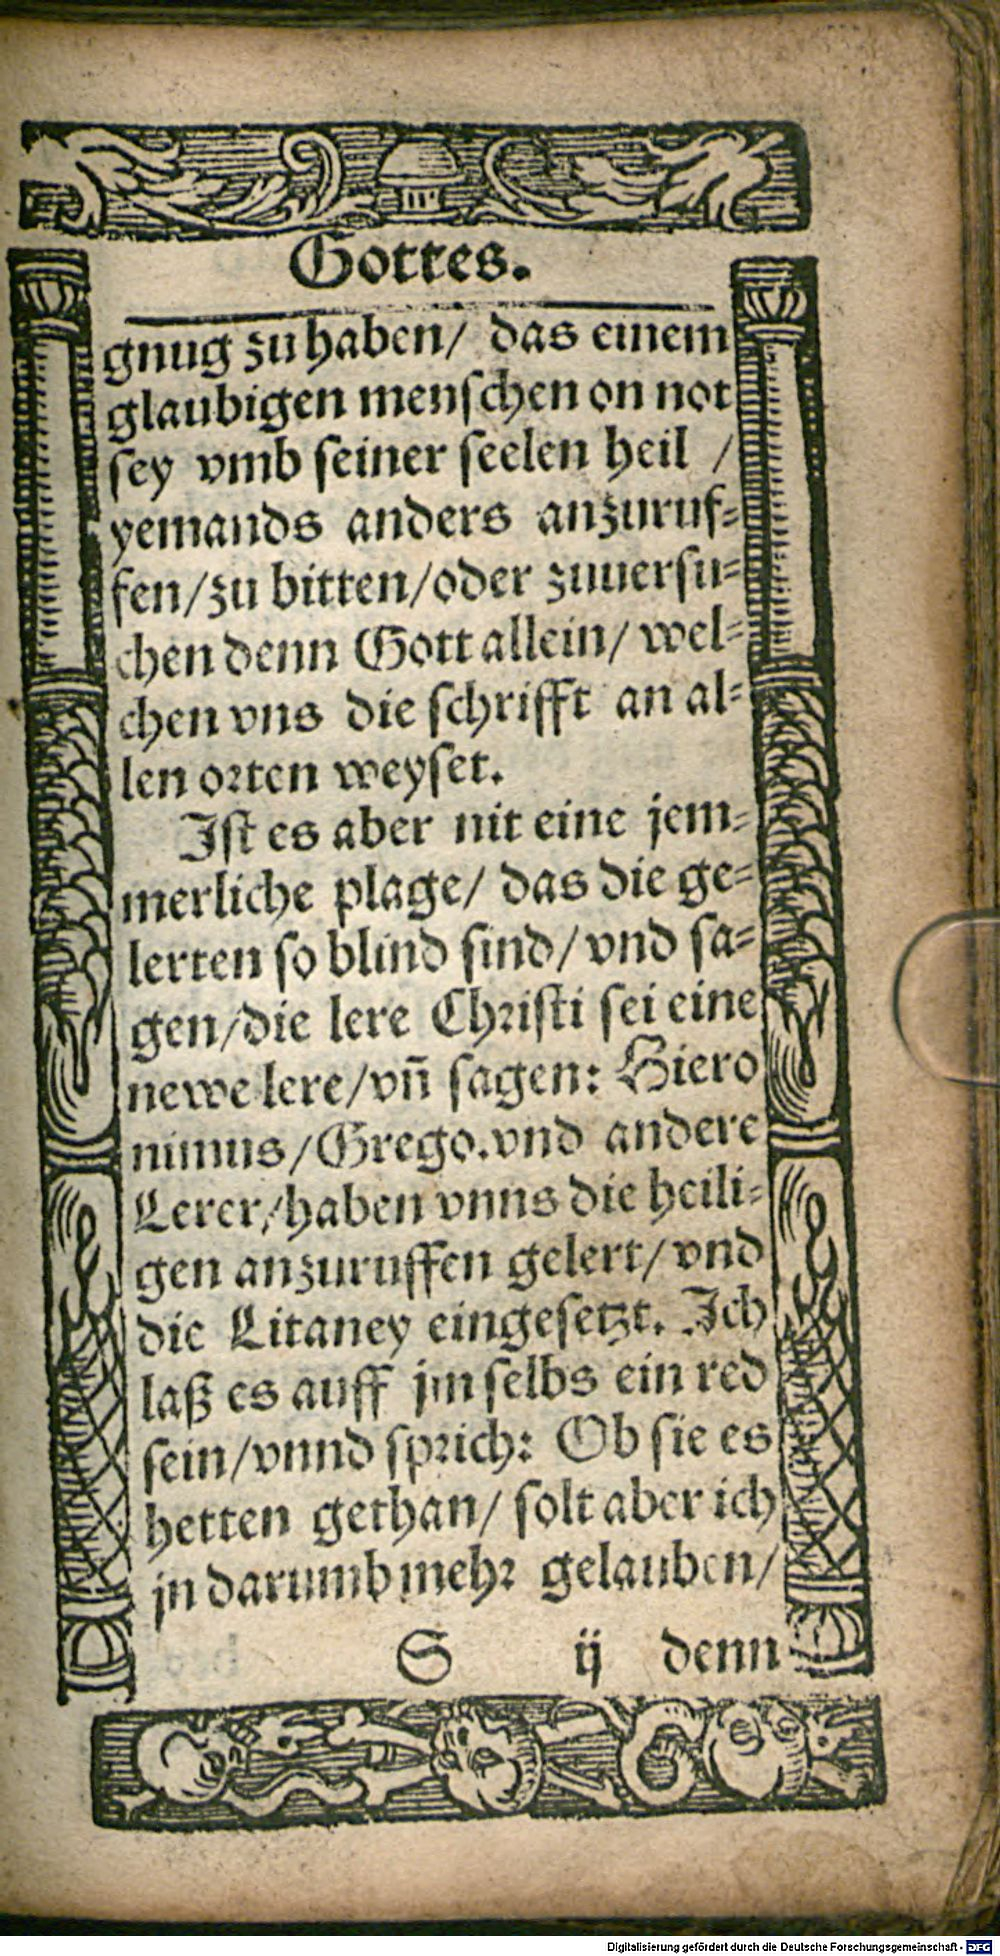 Gottes.
gnug zu haben/ das einem
glaubigen menschen on not
sey vmb seiner seelen heil /
yemands anders anzuruf-
fen/zu bitten/oder zuuersu-
chen denn Gott allein/ wel-
chen vns die schrifft an al-
len orten weyset.
Ist es aber nit eine jem-
merliche plage/ das die ge-
lerten so blind sind/ vnd sa-
gen/die lere Christi sei eine
newe lere/vn̄ sagen: Hiero
nimus/Grego.vnd andere
Lerer/haben vnns die heili-
gen anzuruffen gelert/ vnd
die Litaney eingesetzt. Ich
laß es auff jm selbs ein red
sein/vnnd sprich: Ob sie es
hetten gethan/ solt aber ich
jn darumb mehr gelauben/
S ij denn
Digitalisierung gefördert durch die Deutsche Forschungsgemeinschaft - DFG